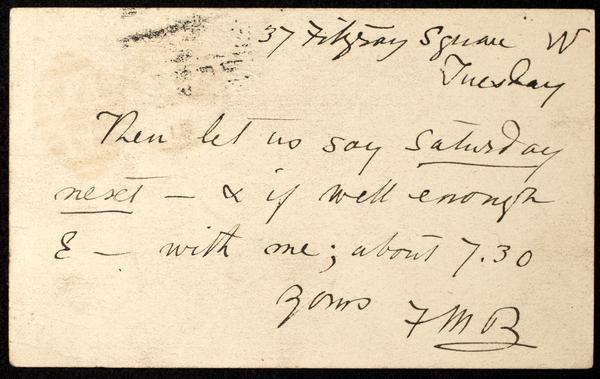 37 Fitzroy Square W
Tuesday
Then let us say Saturday
next — & if well enough
E — with me; about 7.30
Yours FMB